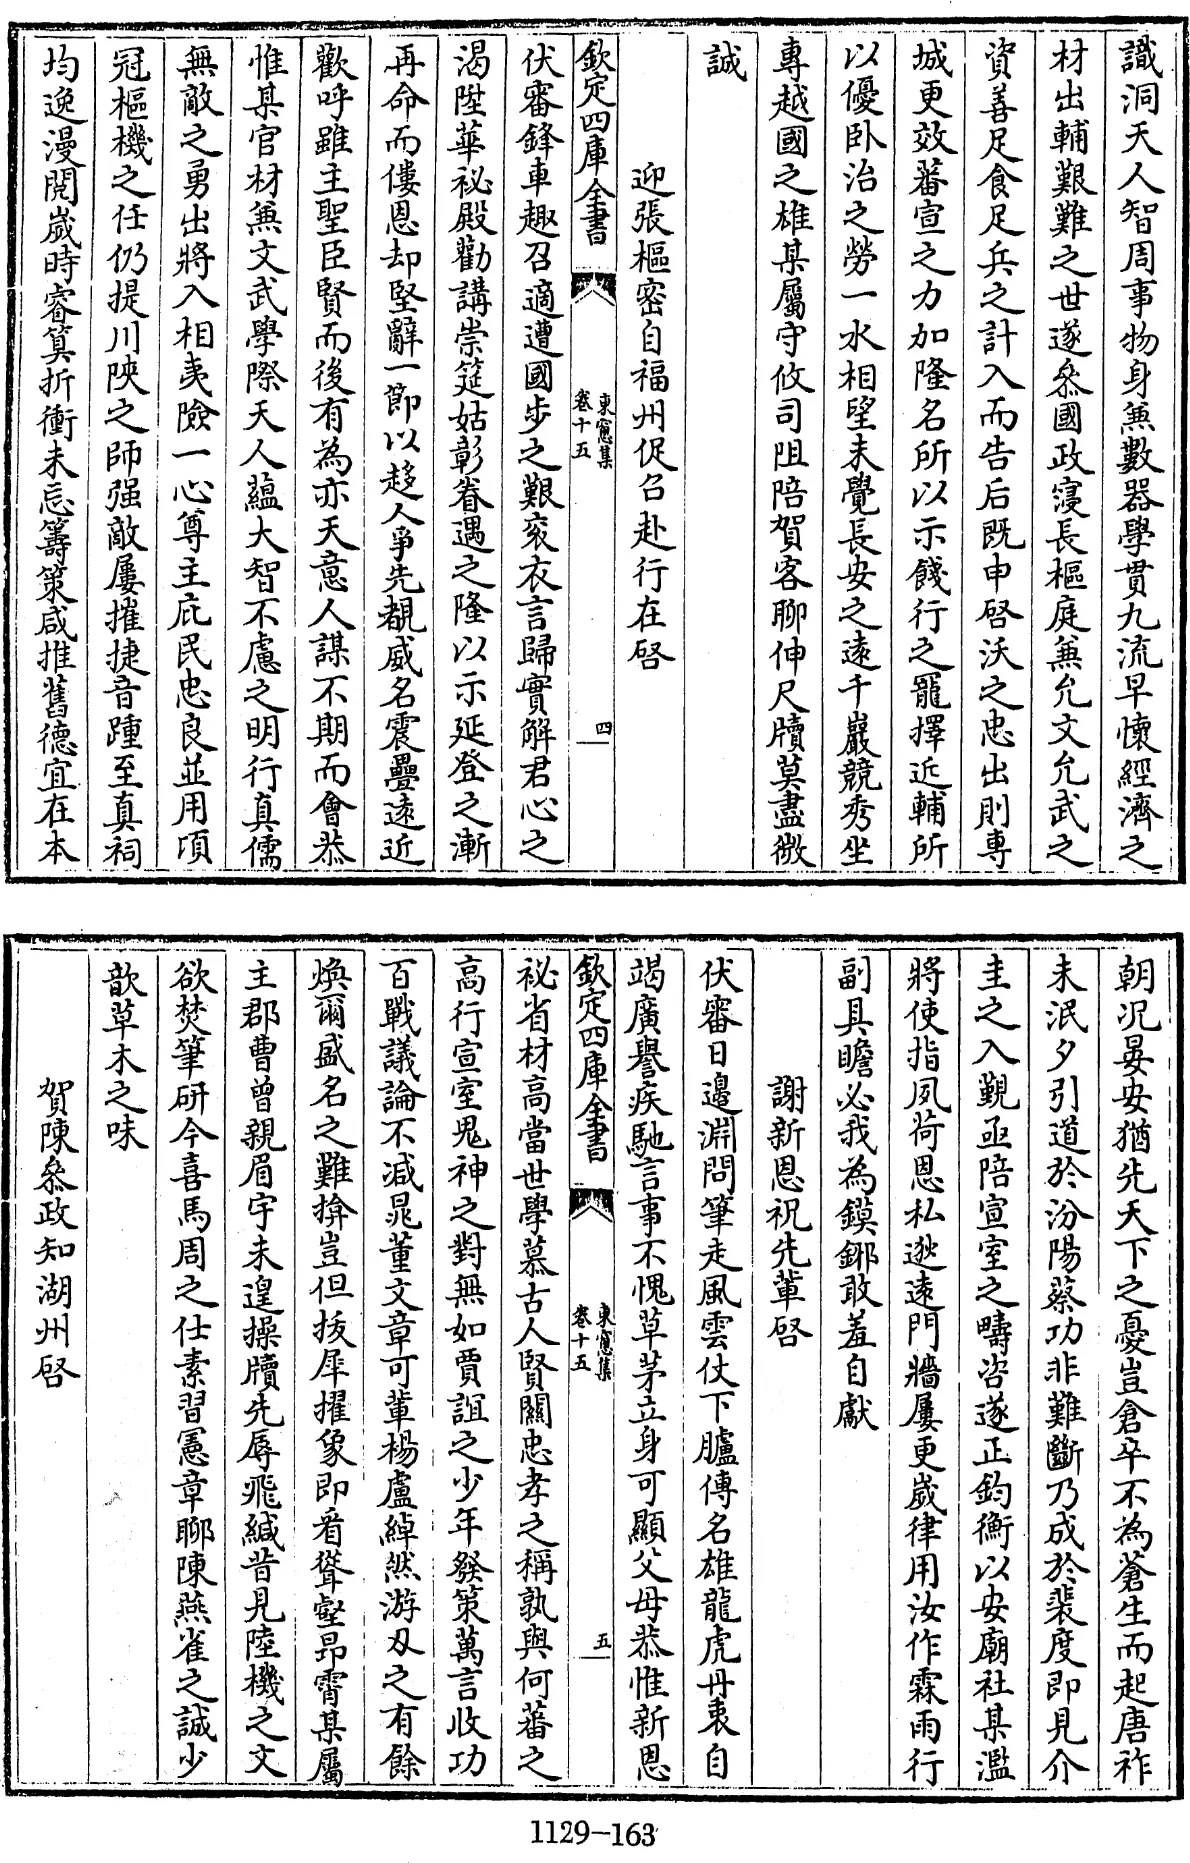 識洞天人智周事物身兼數器學貫九流早懷經濟之
材出輔艱難之世遂叅國政寖長樞庭兼允文允武之
資善足食足兵之計入而告后既申啓沃之忠出則專
城更效蕃宣之力加隆名所以示餞行之寵擇近輔所
以優臥治之勞一水相望未覺長安之遠千巖競秀坐
專越國之雄某屬守攸司阻陪賀客聊伸尺牘莫盡微
誠
迎張樞密自福州促召赴行在啓
欽定四庫全書
東窻集
卷十五
四
伏審鋒車趣召適遭國步之艱衮衣言歸實解君心之
渴陞華祕殿勸講崇筵姑彰眷遇之隆以示延登之漸
再命而僂恩却堅辭一節以趍人爭先覩威名震疊遠近
歡呼雖主聖臣賢而後有為亦天意人謀不期而會恭
惟某官材兼文武學際天人蘊大智不慮之明行真儒
無敵之勇出將入相夷險一心尊主庇民忠良並用頃
冠樞機之任仍提川陝之師强敵屢摧捷音踵至真祠
均逸漫閲歲時睿筭折衝未忘籌策咸推舊德宜在本
朝况晏安猶先天下之憂豈倉卒不為蒼生而起唐祚
未泯夕引道於汾陽蔡功非難斷乃成於裴度即見介
圭之入覲亟陪宣室之疇咨遂正鈞衡以安廟社某濫
將使指夙荷恩私逖遠門牆屢更歲律用汝作霖雨行
副具瞻必我為鏌鋣敢羞自獻
謝新恩祝先輩啓
伏審日邉淵問筆走風雲仗下臚傳名雄龍虎丹衷自
竭廣譽疾馳言事不愧草茅立身可顯父母恭惟新恩
欽定四庫全書
東窻集
卷十五
五
祕省材高當世學慕古人賢關忠孝之稱孰與何蕃之
高行宣室鬼神之對無如賈誼之少年發策萬言收功
百戰議論不减晁董文章可輩楊盧綽然游刃之有餘
煥爾盛名之難揜豈但抜犀擢象即看聳壑昂霄某屬
主郡曹曾親眉宇未遑操牘先辱飛緘昔見陸機之文
欲焚筆研今喜馬周之仕素習憲章聊陳燕雀之誠少
歆草木之味
賀陳叅政知湖州啓
1129-163